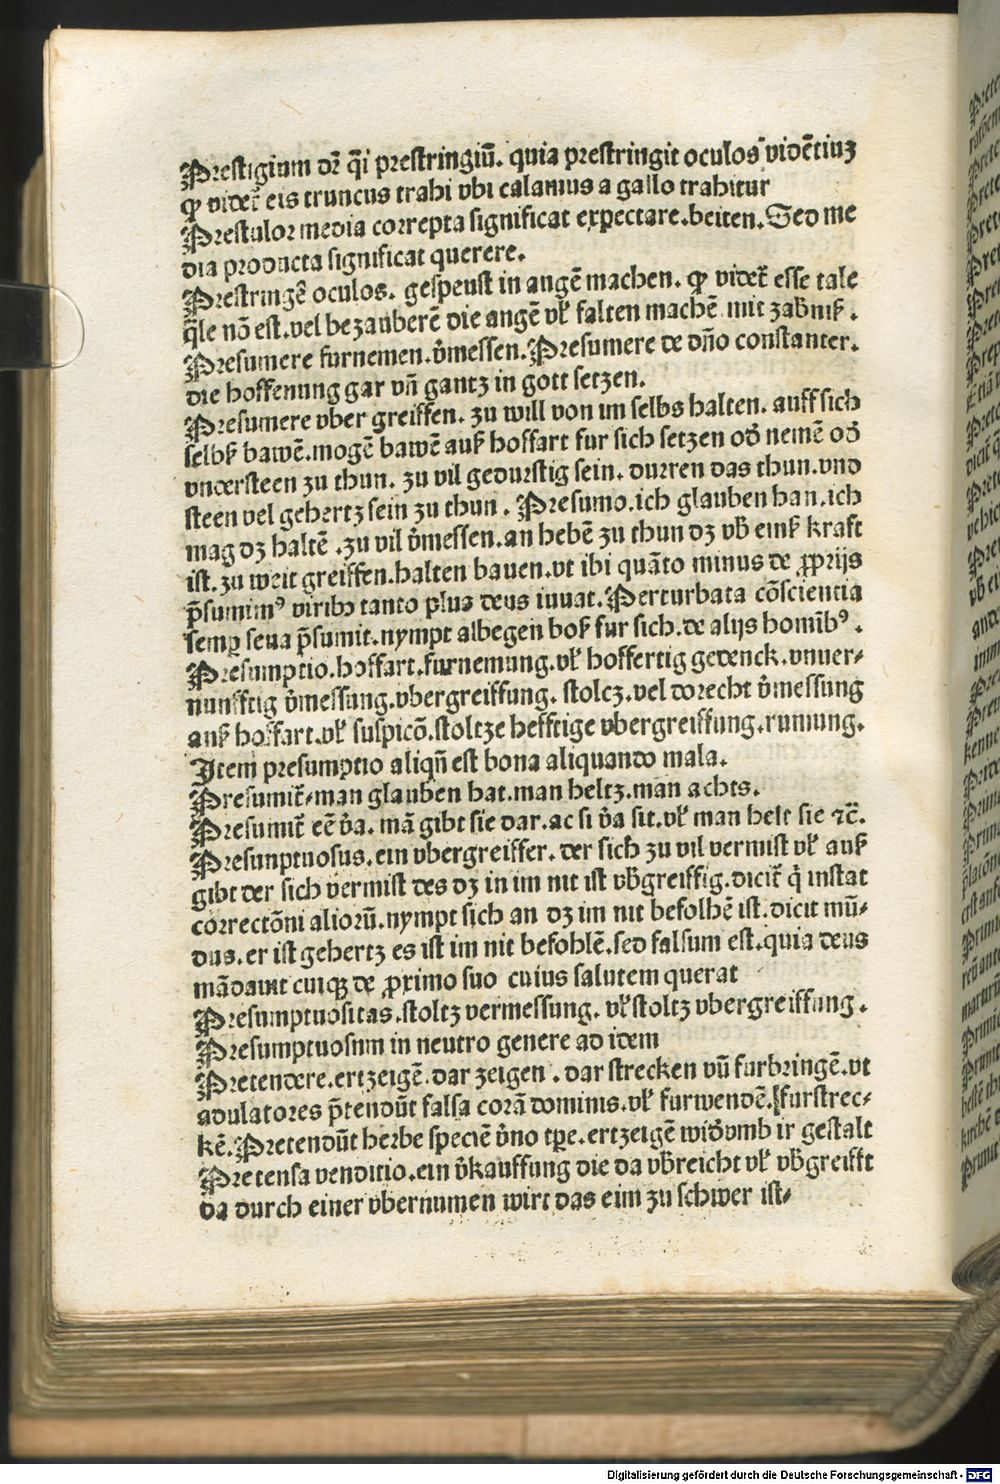 Prestigium dr̄ q̄si prestringiū. quia prestringit oculos vidētiuȝ
ꝙ videt̄ eis truncus trahi vbi calamus a gallo trahitur
Prestulor media correpta significat expectare.beiten.Sed me
dia producta significat querere.
Prestringē oculos. gespenst in augē machen. ꝙ videt̄ esse tale
q̄le nō est.vel bezauberē die augē vl̄ falten machē mit
Presumere furnemen.v̄messen.Presumere de dn̄o constanter.
die hoffenung gar vn̄ gantz in gott setzen.
Presumere vber greiffen. zu will von im selbs halten. auff sich
selbß bawē.mogē bawē auß hoffart fur sich setzen od̄ nemē od̄
vndersteen zu thun. zu vil gedurstig sein. durren das thun.vnd
steen vel gehertz sein zu thun. Presumo.ich glauben han.ich
mag dȝ haltē .zu vil v̄messen.an hebē zu thun dȝ vb̄ einß krafft
ist.zu weit greiffen.halten bauen.vt ibi quāto minus de ꝓprijs
p̄sumimꝰ viribꝫ tanto plus deus iuuat.Perturbata cōscientia
semꝑ seua p̄sumit.nympt albegen boß fur sich.de alijs homīb​ꝰ.
Presumptio.hoffart.furnemung.vl̄ hoffertig gedenck.vnuer⸗
nunfftig v̄messung.vbergreiffung. stoltz.vel dorecht v̄messung
auß hoffart.vl̄ suspicō.stoltze hefftige vbergreiffung.rumung.
Item presumptio aliqn̄ est bona aliquando mala.
Presumit̄⸗man glauben hat.man heltz.man achts.
Presumit̄ eē v̄a. mā gibt sie dar.ac si v̄a sit.vl̄ man helt sie ⁊c̄.
Presunptuosus.ein vbergreiffer. der sich zu vil vermist vl̄ auß
gibt der sich vermist des dȝ in im nit ist vb̄greiffig.dicit̄ q̇ instat
correctōni aliorū.nympt sich an dȝ im nit befolhē ist.dicit mū⸗
dus.er ist gehertz es ist im nit befohlē.sed falsum est.quia deus
mādauit cuiqꝫ de ꝓximo suo cuius salutem querat
Presumptuositas.stoltz vermessung. vl̄ stoltz vbergreiffung.
Presumptuosum in neutro genere ad idem
Pretendere.ertzeigē.dar zeigen.dar strecken vn̄ furbringē.vt
adulatores p̄tendūt falsa corā dominis.vl̄ furwendē.furstrec⸗
kē.Pretendūt herbe speciē v̄no tꝑe.ertzeigē wid̄vmb ir gestalt
Pretensa venditio.ein v̄kauffung die da vb̄reicht vl̄ vb̄greifft
da durch einer vbernumen wirt das eim zu schwer ist⸗
Digitalisierung gefördert durch die Deutsche Forschungsgemeinschaft - DFG